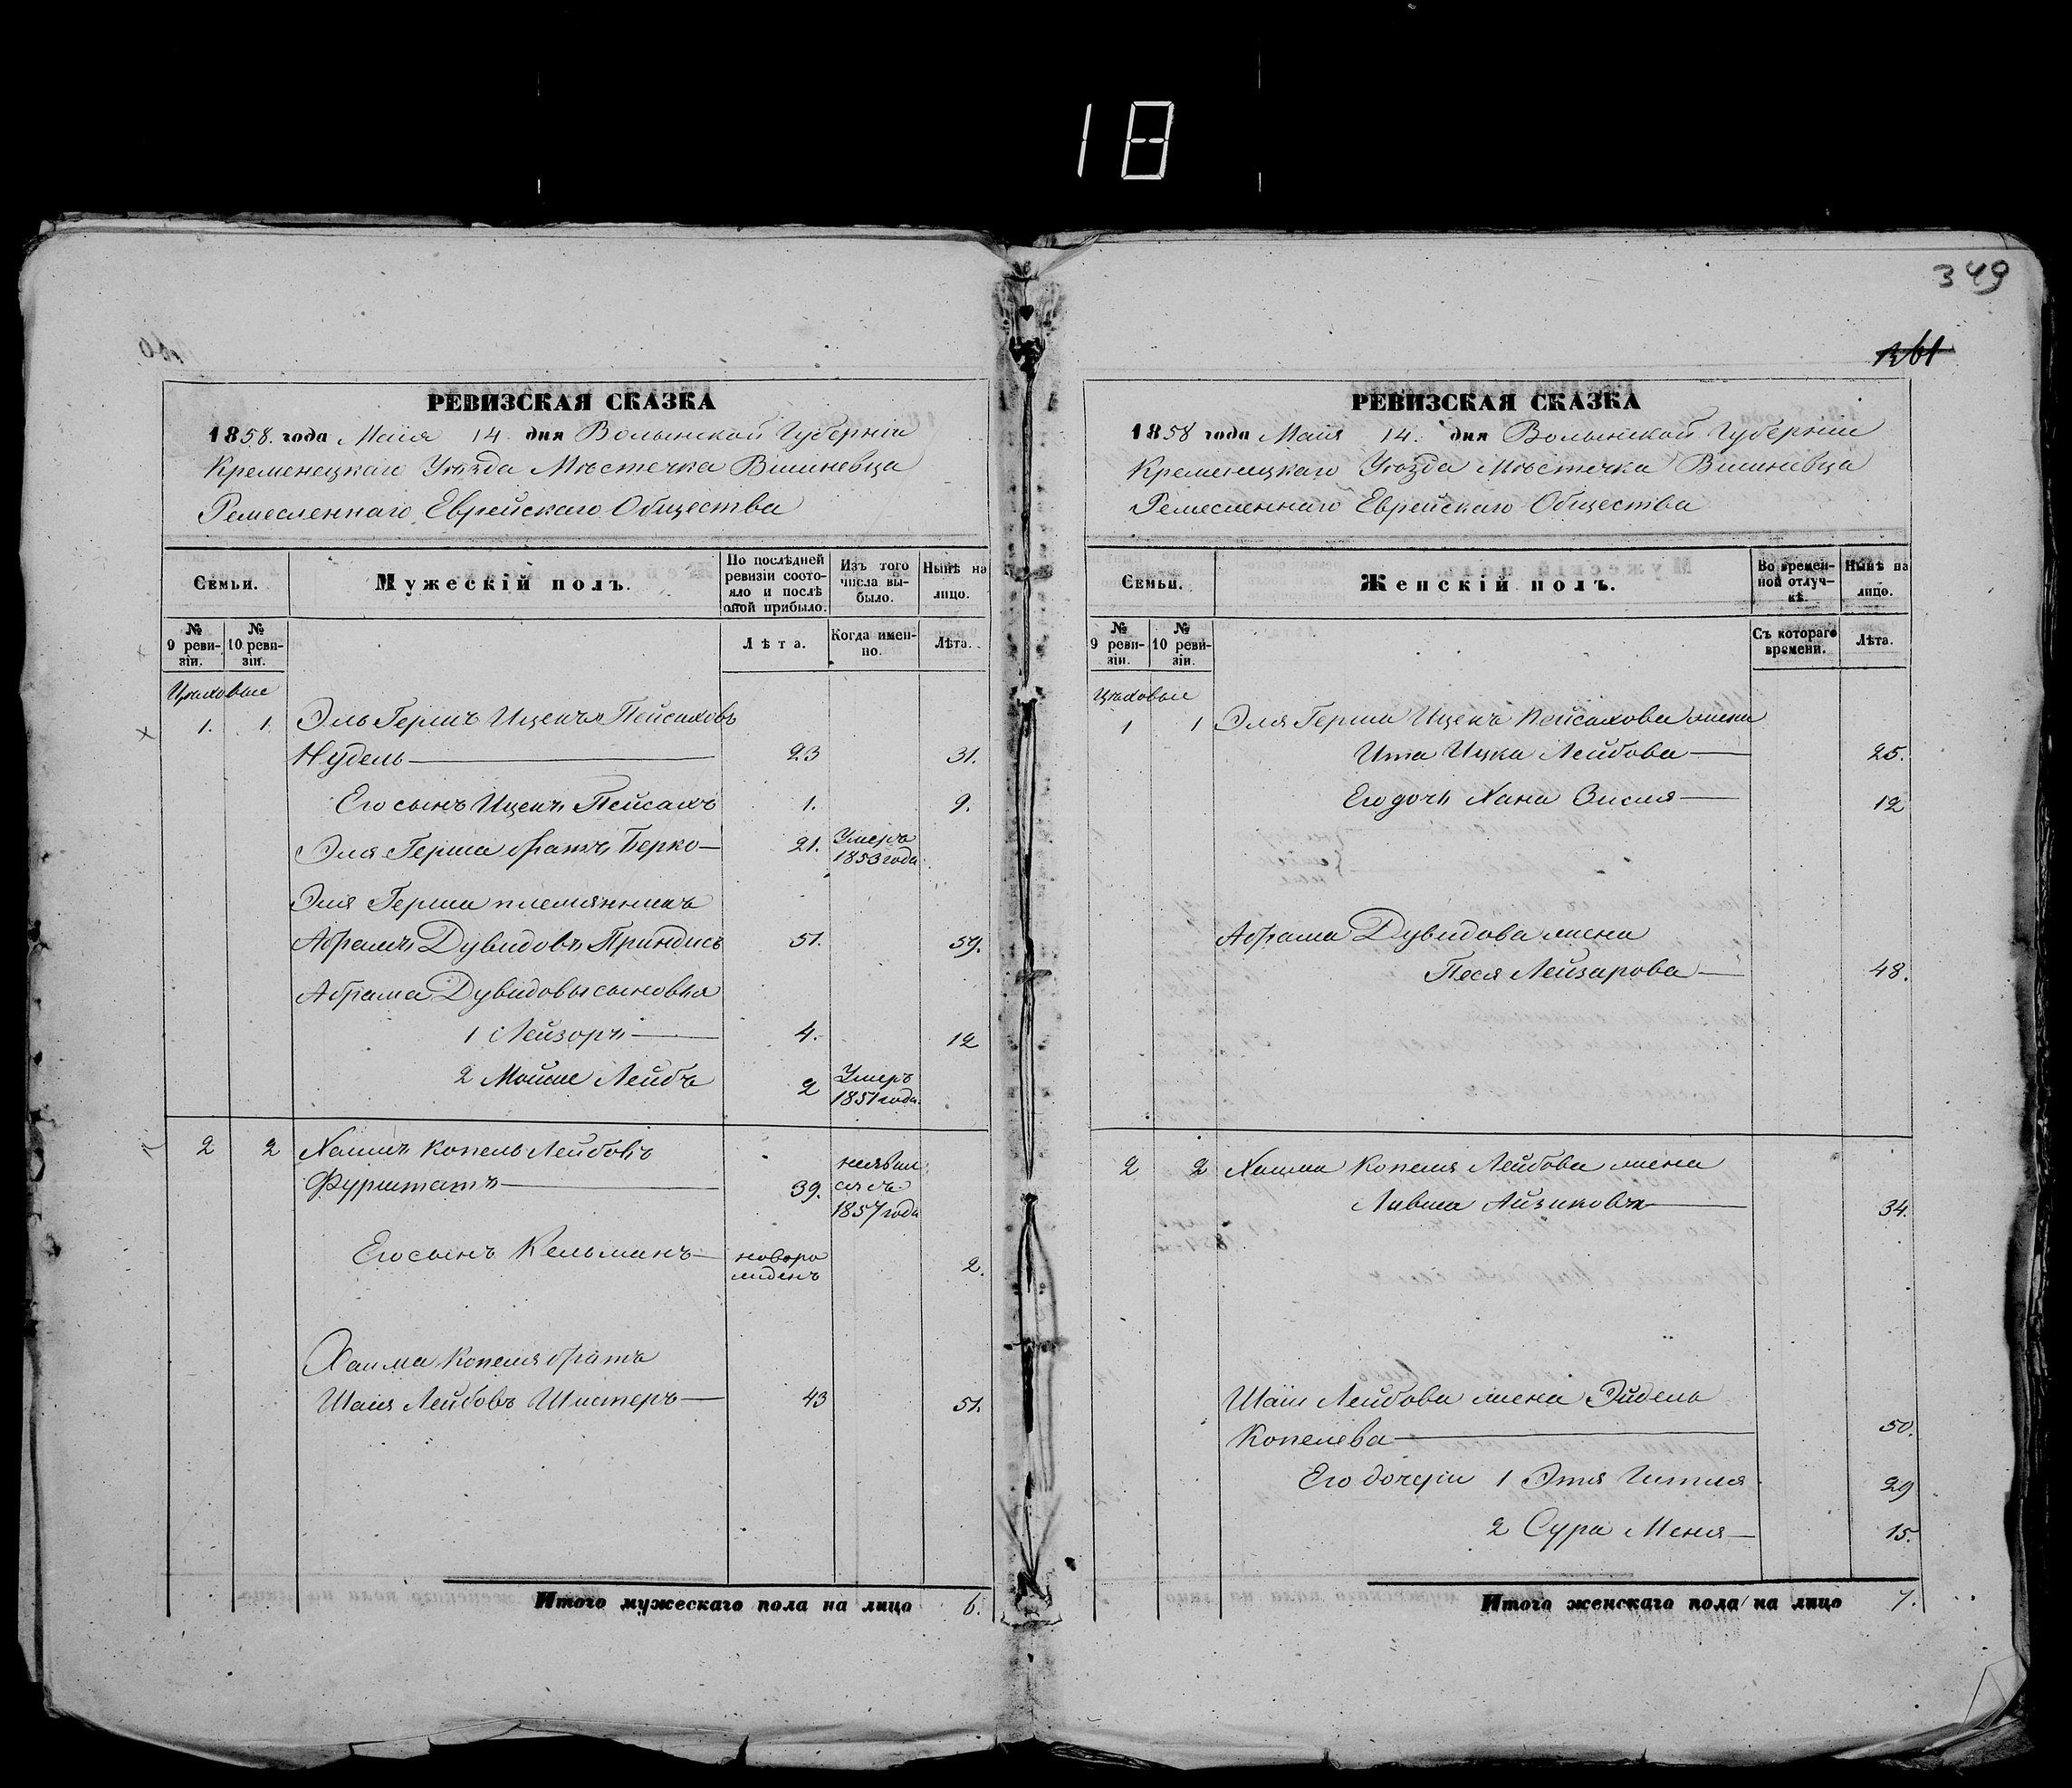 18
349
161
РЕВИЗСКАЯ СКАЗКА
1858. года Маія 14. дня Волынской Губерніи
Кременецкаго Уѣзда Мѣстечка Вишневца
Ремесленнаго Еврейскаго Общества
Семьи.
Мужескій полъ.
По послѣдней ревизіи состояло и послѣ оной прибыло.
Изъ того числа выбыло.
Нынѣ на лицо.
№ 9 ревизіи.
№ 10 ревизіи.
Лѣта.
Когда именно.
Лѣта.
Цѣховые
1. 1 Эль Гершъ Ицекъ Пейсаховъ
Нудель 23 31.
Его сынъ Ицекъ Пейсахъ 1. 9.
Эля Герша братъ Берко 21. Умеръ 1853 года
Эля Герша племянникъ
Абрамъ Дувидовъ Приндись 51. 59.
Абрама Дувидовы сыновья
1 Лейзоръ 4. 12
2 Мойше Лейбъ 2 Умеръ 1851 года
2 2 Хаимъ Копель Лейбовъ
Фурштатъ 39. 1857 года
Его сынъ Кельманъ новорожденъ 2.
Хаима Копеля братъ
Шаія Лейбовъ Шистеръ 43 51.
Итого мужескаго пола на лицо 6.
РЕВИЗСКАЯ СКАЗКА
1858 года Маія 14. дня Волынской Губерніи
Кременецкаго Уѣзда Мѣстечка Вишневца
Ремесленнаго Еврейскаго Общества
Семьи.
Женскій полъ.
Во временной отлучкѣ.
Нынѣ на лицо.
№ 9 ревизіи.
№ 10 ревизіи.
Съ котораго времени.
Лѣта.
Цѣховые
1 1 Эля Герша Ицекъ Пейсахова жена
Ита Ицка Лейбова 25.
Его дочь Хана Зисля 12
Абрама Дувидова жена
Песя Лейзарова 48.
2 2 Хаима Копеля Лейбова жена
Ливша Айзикова 34.
Шаіи Лейбова жена Эйдель
Копелева 50.
Его дочери 1 Этя Гитля 29
2 Сура Меня 15.
Итого женскаго пола на лицо 7.